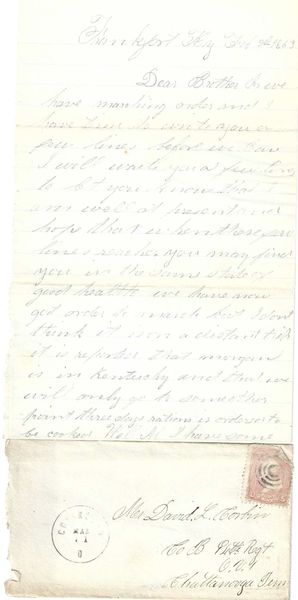 Frankfort Ky 1863
Dear Brother
have marching orders and I
have time to write you a
few lines before we
I will write you a few lines
to let you know that I
am well at present and
hope that when these few
lines reaches you may find
you in the same state of
good health we have now
got order to march but I dont
think it is on a distant trip
it is reported that morgan
is in Kentucky and that we
will only go to some other
point three days rations is ordered to
be cooked I have some
Mr David L. Corbin
Co B Regt
O.V.I
Chattanooga Tenn